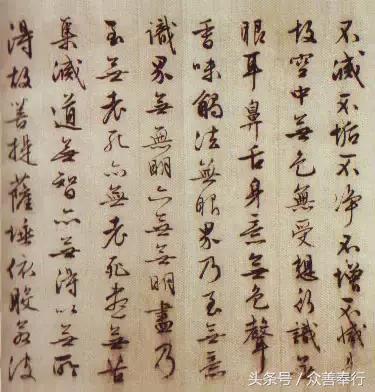 不滅不垢不净不增不減
故空中無色無受想行識無
眼耳鼻舌身意無色聲
香味觸法無眼界乃至無意
識界無無明亦無無明盡乃
至無老死亦無老死盡無苦
集滅道無智亦無得以無所
得故菩提薩埵依般若波
头条号／众善奉行